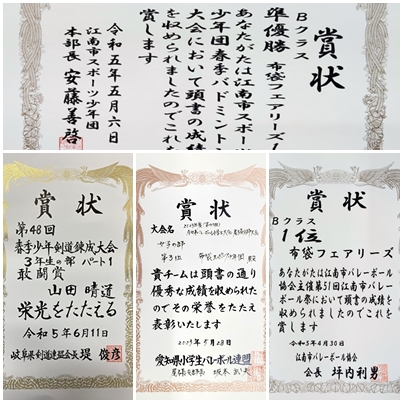 賞状
Bクラス
準優勝 布袋フェアリーズ
あなたがたは江南市スポーツ
少年団春季バドミントン
大会において頭書の成績
を収められましたのでこれを
賞します
令和五年五月六日
江南市スポーツ少年団
本部長 安藤善啓
賞状
第48回
春季少年剣道錬成大会
3年生の部 パート1
敢闘賞
山田 晴道
栄光をたたえる
令和5年6月11日
岐阜県剣道連盟会長 堤 俊彦
賞状
大会名
女子の部
第3位
殿
貴チームは頭書の通り
優秀な成績を収められた
のでその栄誉をたたえ
表彰いたします
2023年5月28日
愛知県小学生バレーボール連盟
賞状
Bクラス
1位
布袋フェアリーズ
あなたがたは江南市バレーボール
協会主催第51回江南市バレーボー
ル祭において頭書の成績を
収められましたのでこれを
賞します
令和5年4月30日
江南市バレーボール協会
会長 坪内利男